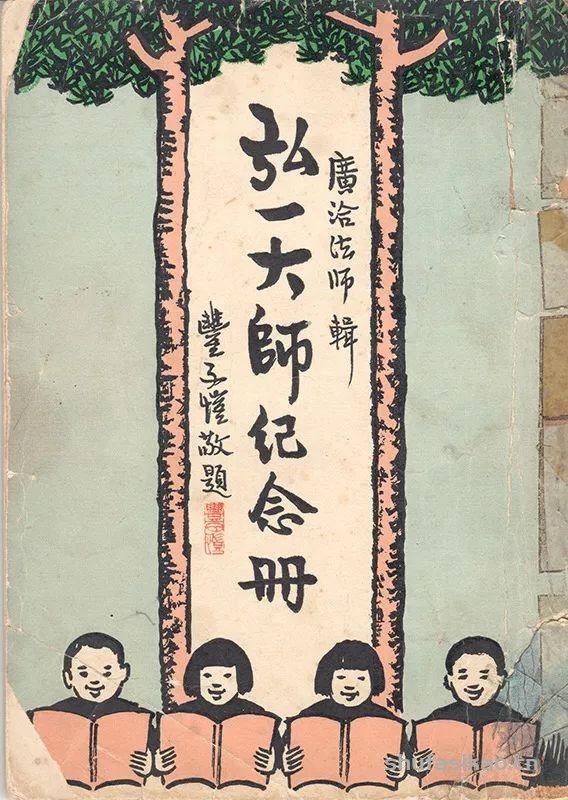 廣洽法師 輯
弘一大師纪念冊
豐子愷敬題
豐子愷
shufazikao.cn